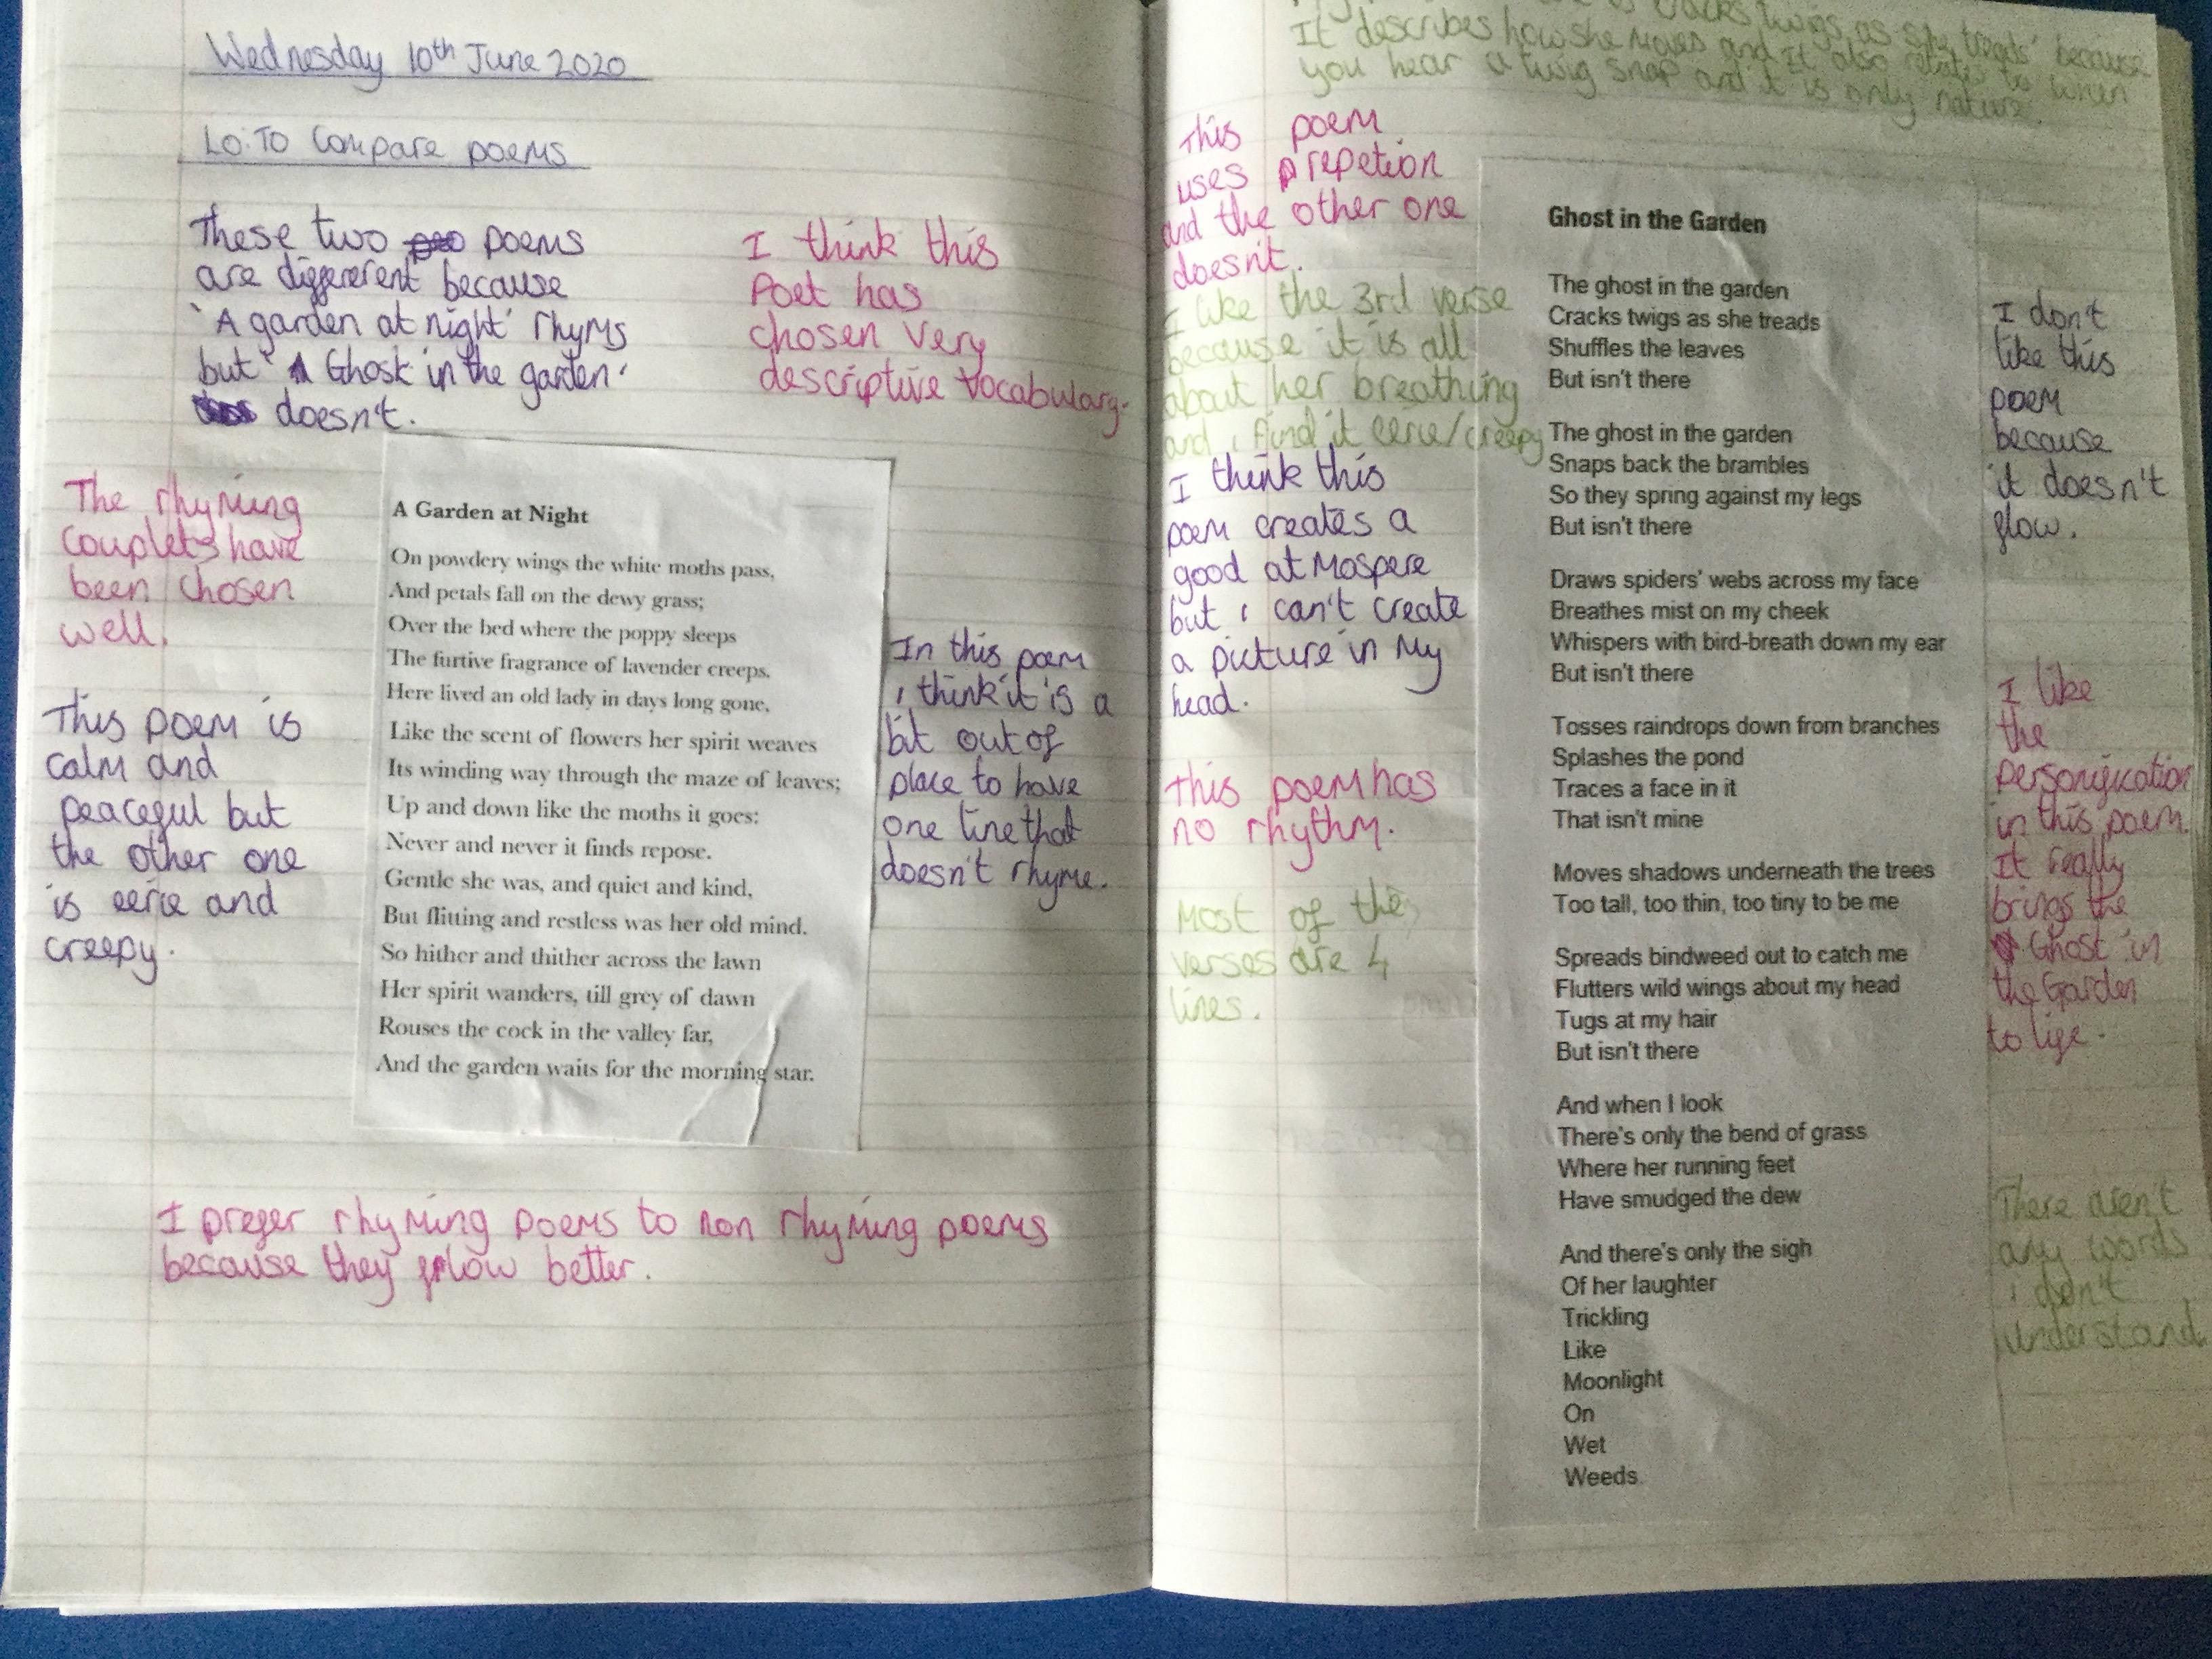 Wednesday 10th June 2020
LO: To Compare poems
These two poems
are differerent because
'A garden at night' rhyms
but 'Ghost in the garden'
doesn't.
I think this
Poet has
chosen very
descriptive vocabulary.
The rhyming
couplets have
been chosen
well.
This poem is
calm and
peaceful but
the other one
is eerie and
creepy.
A Garden at Night
On powdery wings the white moths pass,
And petals fall on the dewy grass;
Over the bed where the poppy sleeps
The furtive fragrance of lavender creeps.
Here lived an old lady in days long gone,
Like the scent of flowers her spirit weaves
Its winding way through the maze of leaves;
Up and down like the moths it goes:
Never and never it finds repose.
Gentle she was, and quiet and kind,
But flitting and restless was her old mind.
So hither and thither across the lawn
Her spirit wanders, till grey of dawn
Rouses the cock in the valley far,
And the garden waits for the morning star.
In this poem
i think it is a
bit out of
place to have
one line that
doesn't rhyme.
I prefer rhyming poems to non rhyming poems
because they flow better.
cracks twigs as she treads' because
It describes how she moves and It also relates to when
you hear a twig snap and it is only nature.
This poem
uses repetion
and the other one
doesn't.
I like the 3rd verse
because it is all
about her breathing
and i find it eerie/creepy
I think this
poem creates a
good atmospere
but i can't create
a picture in my
head.
This poem has
no rhythm.
Most of the
verses are 4
lines.
Ghost in the Garden
The ghost in the garden
Cracks twigs as she treads
Shuffles the leaves
But isn't there
The ghost in the garden
Snaps back the brambles
So they spring against my legs
But isn't there
Draws spiders' webs across my face
Breathes mist on my cheek
Whispers with bird-breath down my ear
But isn't there
Tosses raindrops down from branches
Splashes the pond
Traces a face in it
That isn't mine
Moves shadows underneath the trees
Too tall, too thin, too tiny to be me
Spreads bindweed out to catch me
Flutters wild wings about my head
Tugs at my hair
But isn't there
And when I look
There's only the bend of grass
Where her running feet
Have smudged the dew
And there's only the sigh
Of her laughter
Trickling
Like
Moonlight
On
Wet
Weeds.
I don't
like this
poem
because
it doesn't
flow.
I like
the
personification
in this poem.
It really
brings the
Ghost in
the Garden
to life.
There aren't
any words
i don't
understand.